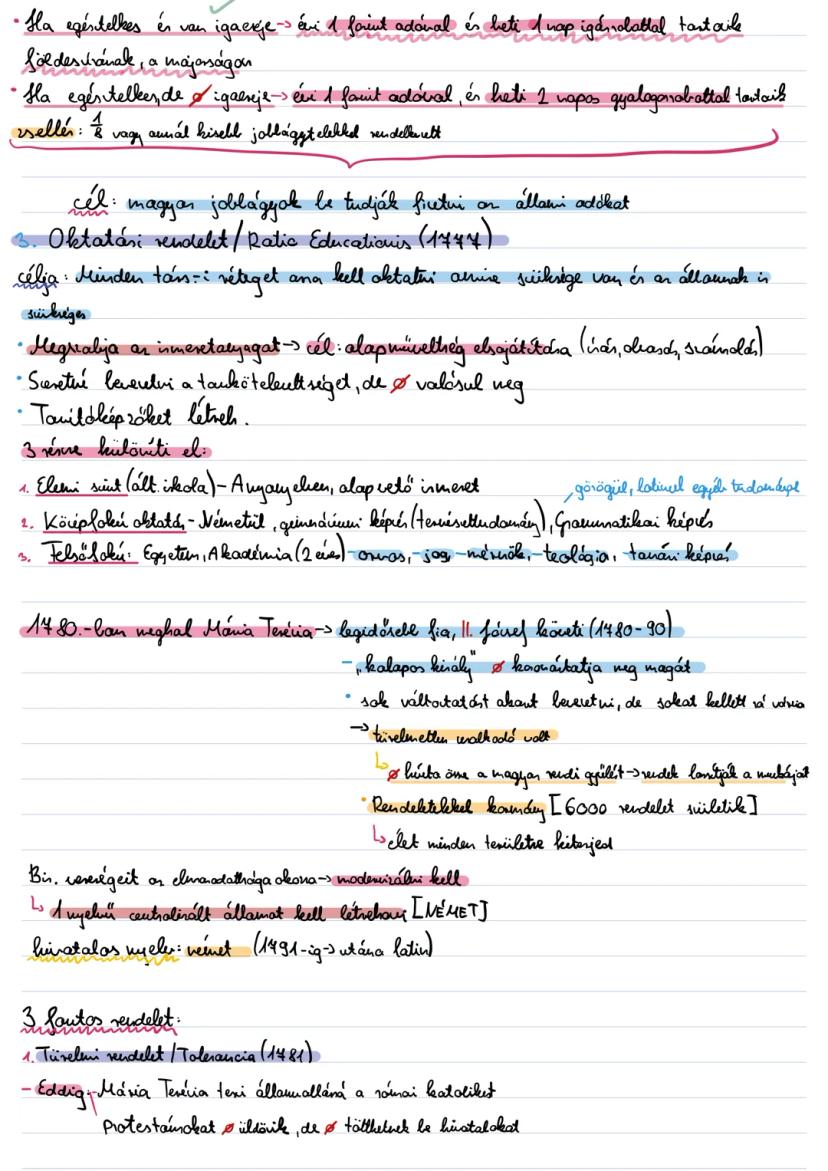 • Ha egésztelkes és van igaereje → évi 1 forint adóval és heti 1 nap igásrobattal tartozik
földesurának, a majorságon
• Ha egésztelkes, de ∅ igaereje → évi 1 forint adóval, és heti 2 napos gyalogrobottal tartozik
zsellér: 1/8 vagy annál kisebb jobbágytelekkel rendelkezett
cél: magyar jobbágyok be tudják fizetni az állami adókat
3. Oktatási rendelet / Ratio Educationis (1777)
célja: Minden társ-i réteget arra kell oktatni amire szüksége van és az államnak is
szükséges
• Megszabja az ismeretanyagat → cél: alapműveltség elsajátítása (írás, olvasás, számolás)
• Szeretné bevezetni a tankötelezettséget, de ∅ valósul meg
• Tanítóképzőket létreh.
3 részre különíti el:
1. Elemi szint (ált. iskola) - Anyanyelven, alapvető ismeret
görögül, latinul egyéb tudományok
2. Középfokú oktatás - Németül, gimnáziumi képzés (természettudomány), Grammatikai képzés
3. Felsőfokú: Egyetem, Akadémia (2 éves) - orvos, - jog, - mérnök, - teológia, - tanári képzés
1780.-ban meghal Mária Terézia → legidősebb fia, II. József követi (1780-90)
- "kalapos király" ∅ koronáztatja meg magát
• sok változtatást akart bevezetni, de sokat kellett rá várnia
→ türelmetlen uralkodó volt
↳ ∅ hívta össze a magyar rendi gyűlést → rendek lassítják a munkáját
• Rendeletekkel kormány [6000 rendelet születik]
↳ élet minden területre kiterjed
Bir. vereségeit az elmaradottsága okozza → modernizálni kell
↳ 1 nyelvű centralizált államot kell létrehozni [NÉMET]
hivatalos nyelv: német (1791-ig → utána latin)
3 fontos rendelet:
1. Türelmi rendelet / Tolerancia (1781)
- Eddig: - Mária Terézia teszi államvallássá a római katolikust
Protestánsokat ∅ üldözik, de ∅ tölthetnek be hivatalokat